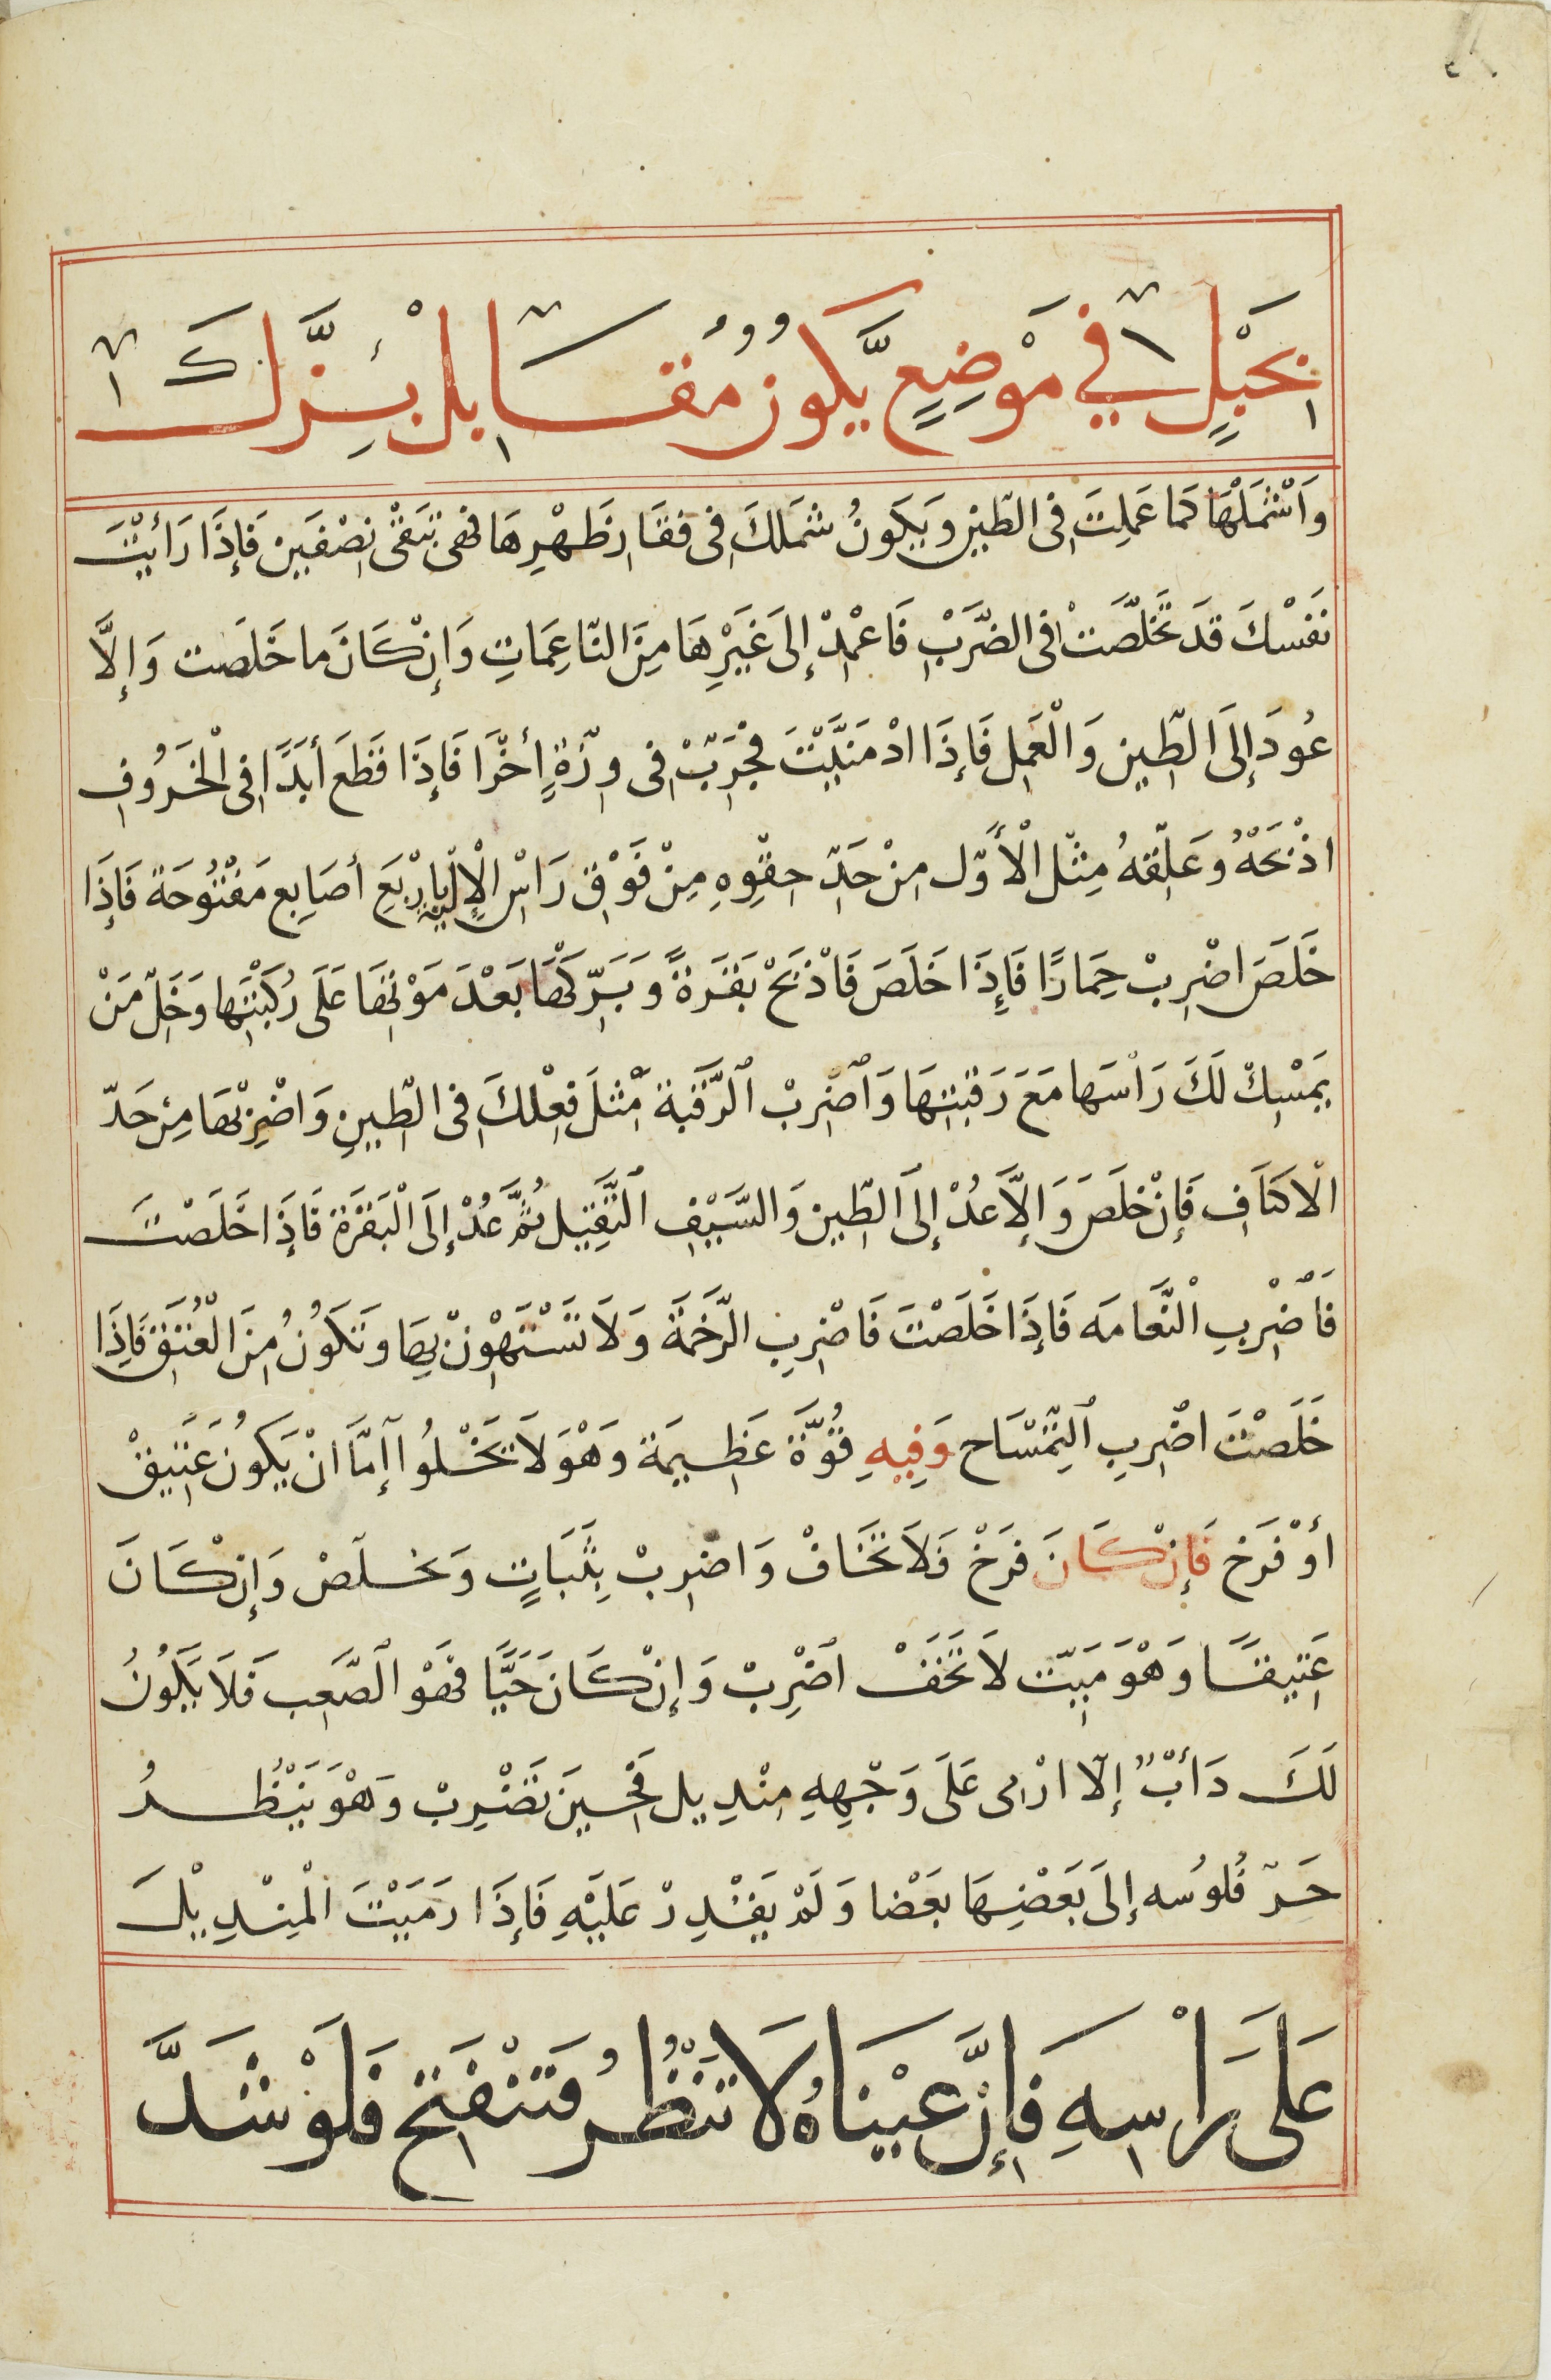 بحَبْلٍ في مَوْضِعٍ يَّكون مُقَابل بِزَّكَ
وَاَشْمَلْهَا كما عَمِلتَ فِى الطّين وَيَكَونُ شَملَكَ فِى فقَار ظَهْرِهَا فهى تبَقْى نِصْفَين فَإِذَا رَأَيْتَ
نَفَسْكَ قَد تَخَلَّصَتْ فِى الضّرَبْ فَاعْمِدْ إِلىَ غَيَرِْهَا مِنَ النّاعِمَاتِ وَإِنْ كَانَ ما خَلَصَت وَإِلاَّ
عُودَ إِلىَ الطّين وَالْعَمِل فَإِذَا ادْمَنَيَّتَ فجْرَبّْ فِى وِزّةٍ أخرَّا فَإِذَا قَطَعَ أَبَدًَا فِى الْخَرُوف
اذْبَحَهُْ وعَلِّقهُ مِثْل الْأَوّل مِنْ حَدِّ حِقْوِهِ مِنْ فَوْق رَاسْ الْإِلْيه بِارْبْعَ أصَابِع مَفْتُوحَة فَإِذَا
خَلَصَ اضْرِبْ حِمَارًا فَإِذَا خَلَصَ فَاذْبَحْ بَقَرَةً وَبَرّكَهَْا بَعْدَ مَوْتِهَا عَلَى رُكبَتْهَا وَخَلِّ مَنْ
يَمْسِكْ لَكَ رَاْسَها مَعَ رَقبَتِهَا وَاَضْرِبْ الرَّقبَة مِثْلَ فِعْلكَ فِى الطّينِ وَاضْرِبْهَا مِنْ حَدّ
الْاكتَاَفِ فَإِنْ خَلَصَ وَإِلاَّ عُدْ إِلىَ الطّين وَالسَّيْفِ الثَّقِيَل ثُمَّ عُدْ إِلَى الْبَقَرَة فَإِذَا خَلَصْتَ
فَاَضْرِبِ الْنَّعَامَه فَإِذَا خَلَصْتَ فَاضْرِبِ الرّخَمَة وَلاَ تَسْتَهْوِنْ بِهَا وتَكَوُنُ مِنَ الْعُنَقِ فَاِذَا
خَلَصْتَ اضْرِبِ التِمّسَاح وَفِيهِ قُوَّة عَظِيمَة وَهْوَ لاَ تَخْلُوا إمَّا انْ يَكونُ عَتَيقْ
أوْ فَرَخ فَإِنْ كَانَ فرَخْ فَلاَ تَخَافْ وَاضرِبْ بِثَبَاتٍ وَتخلَصْ وَإِنْ كَانَ
عَتيقًا وَهْوَ مَيّت لاَ تَخَفْ اضْرِبْ وَإِنْ كَانَ حَيًّا فهَوْ الصّعَب فَلاَ يَّكوُنُ
لَكَ دَأَبْ إِلاّ ارْمى عَلَى وَجْهِهِ مِنْديل فَحْين تَضْرِبْ وَهْوَ يَنْظُرُ
حَرّ فُلُوسُه إِلىَ بَعَضِهَا بَعَضَا وَلَمْ يَقْدِرْ عَلَيْهِ فَإِذَا رَمَيْتَ الْمِنْدِيْلَ
عَلَى رَاْسِهِ فَإِنَّ عَيْنَاهُ لاَ تَنْظُرُ فَتَنْفَتِح فَلَوْ شَدَّ